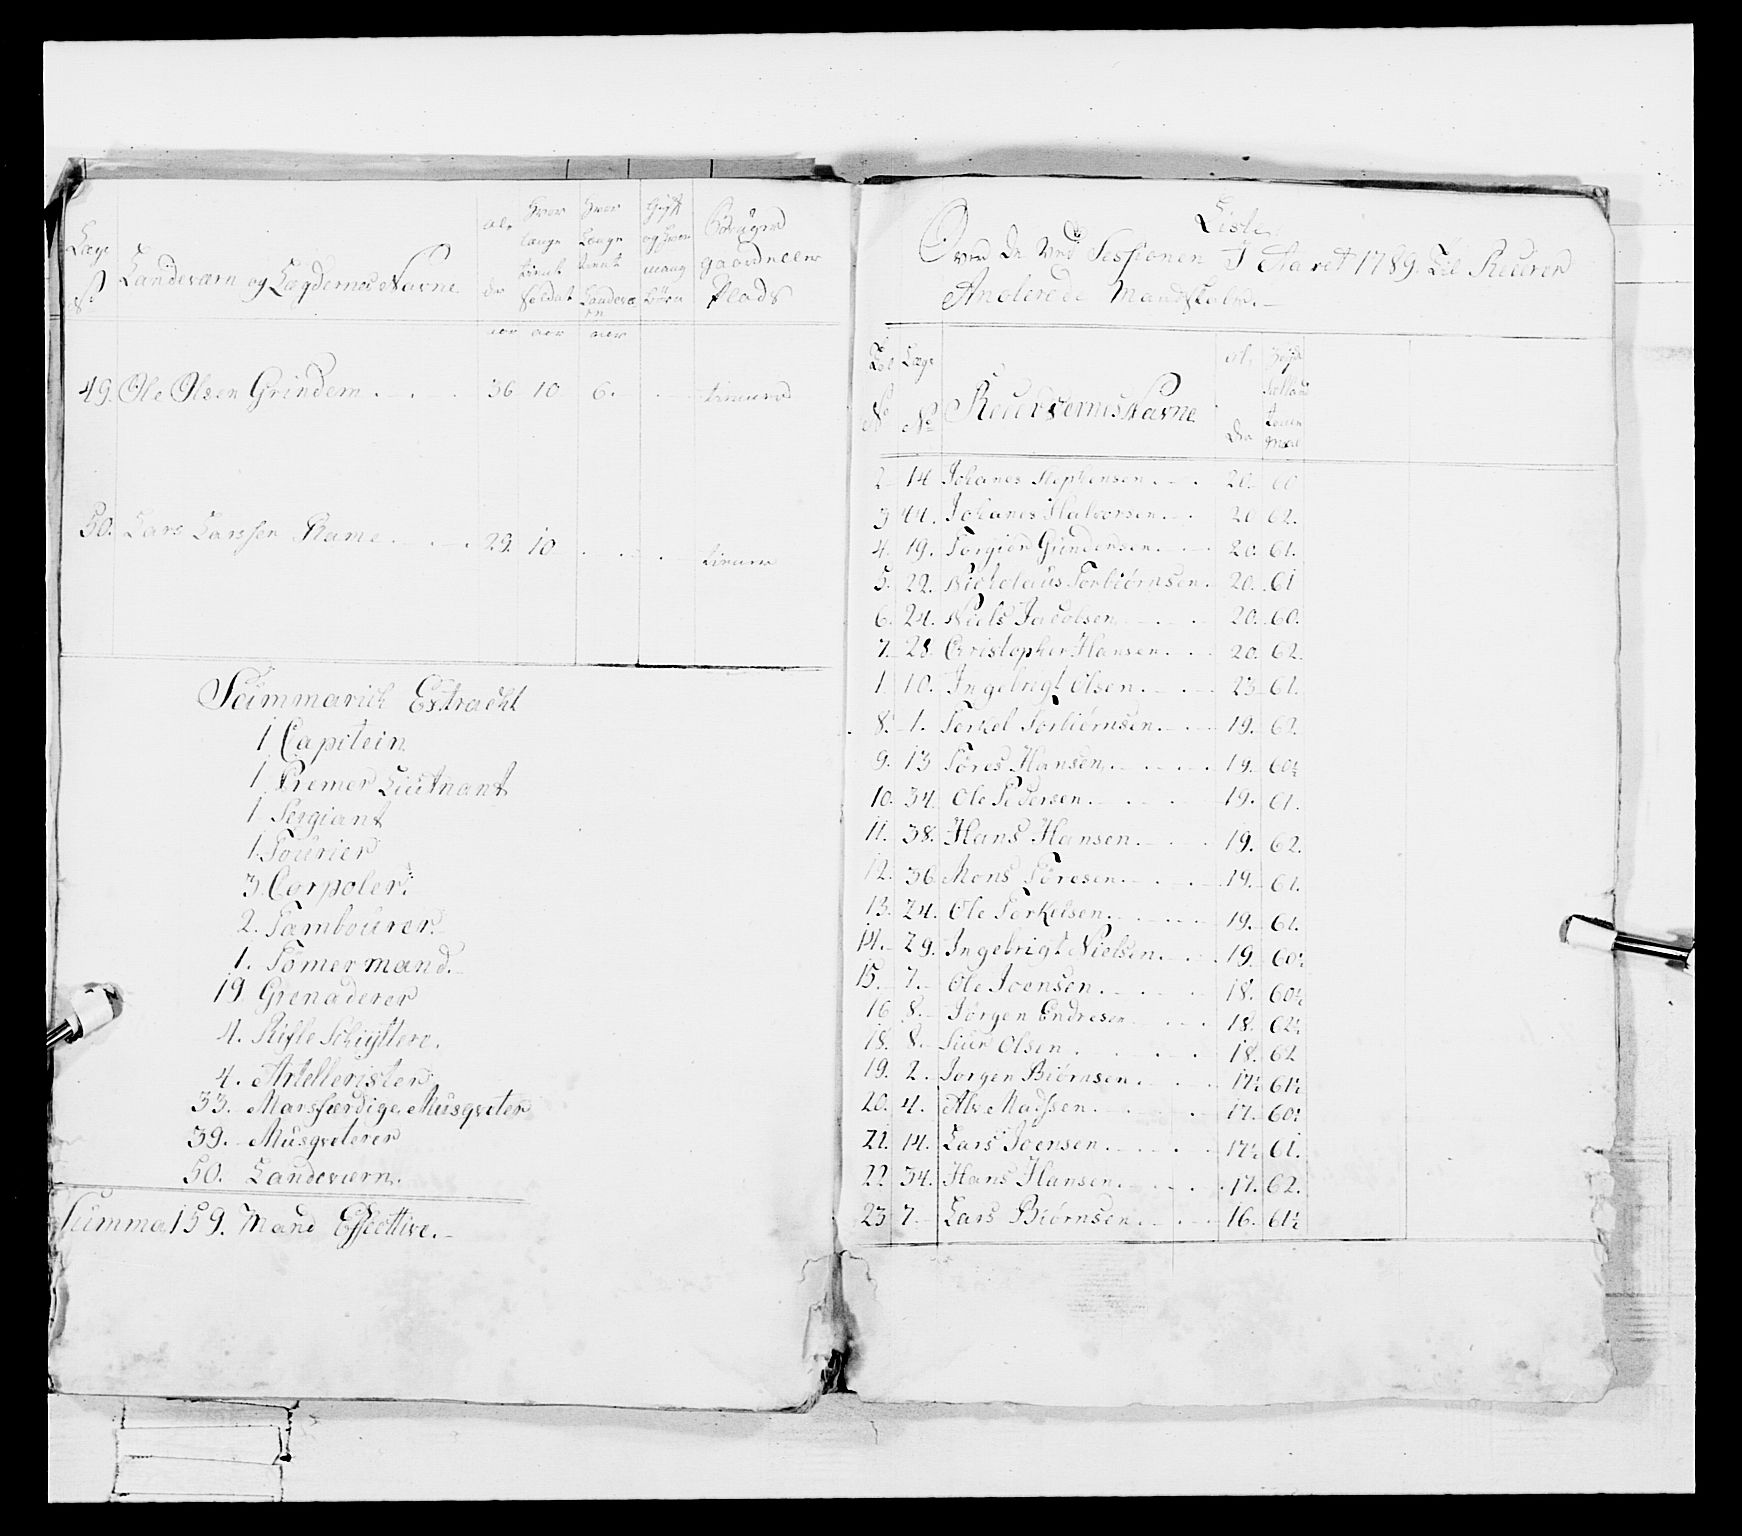 Læg
No
Landeværn og Lægdernes Navne
Al-
der
Hvor
længe
tient
Soldat
Hvor
Længe
tient
Landevæ
rn
Gift
og hvor
mang
Børn
Bruger
gaard eller
Plads
aar aar aar
49. Ole Olsen Grindem 36 10 6. tienner
50. Lars Larssen Rame 29. 10 tienner
Summarisk Extracht
1 Capitein
1 Premer Lieutnant
1 Sergiant
1. Fourier
3. Corpoler
2. Tambourer
1. Tømermand.
19 Grenaderer
4. Rifle Schyttere.
4. Artellerister
33. Marsfærdige Musqveter
39. Musqveterer
50. Landeværn.
Summa 159. Mand Effective.
Liste
Over De Ved Sessionen I Aaret 1789. Til Reserver
Anoterede Mandskaber.
No
Læg
No
Reservernes Navne
Al-
der
Højde
2 14 Johanes Stephensen 20. 60
3 44. Johanes Halvorsen 20 62.
4. 19. Torgier Gundersen 20. 61.
5. 22. Nicholaus Torbiørnsen. 20. 61
6. 24. Niels Jacobsen 20. 60.
7. 28 Christopher Hansen 20. 62.
1. 10. Ingebrigt Olsen 23 61.
8. 1. Terkel Torbiørnsen. 19. 62.
9. 13 Tøres Hansen 19. 60½
10. 34. Ole Pedersen 19. 61.
11. 38. Hans Hansen 19. 62.
12. 36 Mons Tøresen 19. 61.
13. 24. Ole Terkelsen 19. 61.
14. 29. Ingebrigt Nielsen 19. 60½
15. 7. Ole Joensen 18. 60½
16 8. Jørgen Endresen 18. 62½
18. 8. Siur Olsen 18. 62
19. 2. Jørgen Biørnsen 17½ 61½
20. 4. Alv Madssen 17. 60½
21. 14. Lars Joensen 17½ 61.
22 34. Hans Hansen 17. 62.
23 7 Lars Biørnsen 16. 61½